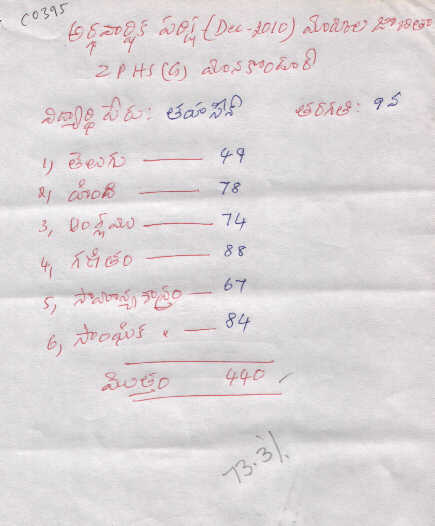 C0395
అర్థవార్షిక పరీక్ష (Dec-2010) మార్కుల జాబితా
Z P HS (G) మానకొండూర్
విద్యార్థి పేరు: తహసీన్ తరగతి: 9వ
1) తెలుగు —— 49
2) హింది —— 78
3, ఇంగ్లీషు —— 74
4, గణితం —— 88
5, సామాన్య శాస్త్రం — 67
6, సాంఘిక " — 84
మొత్తం 440
73.3%